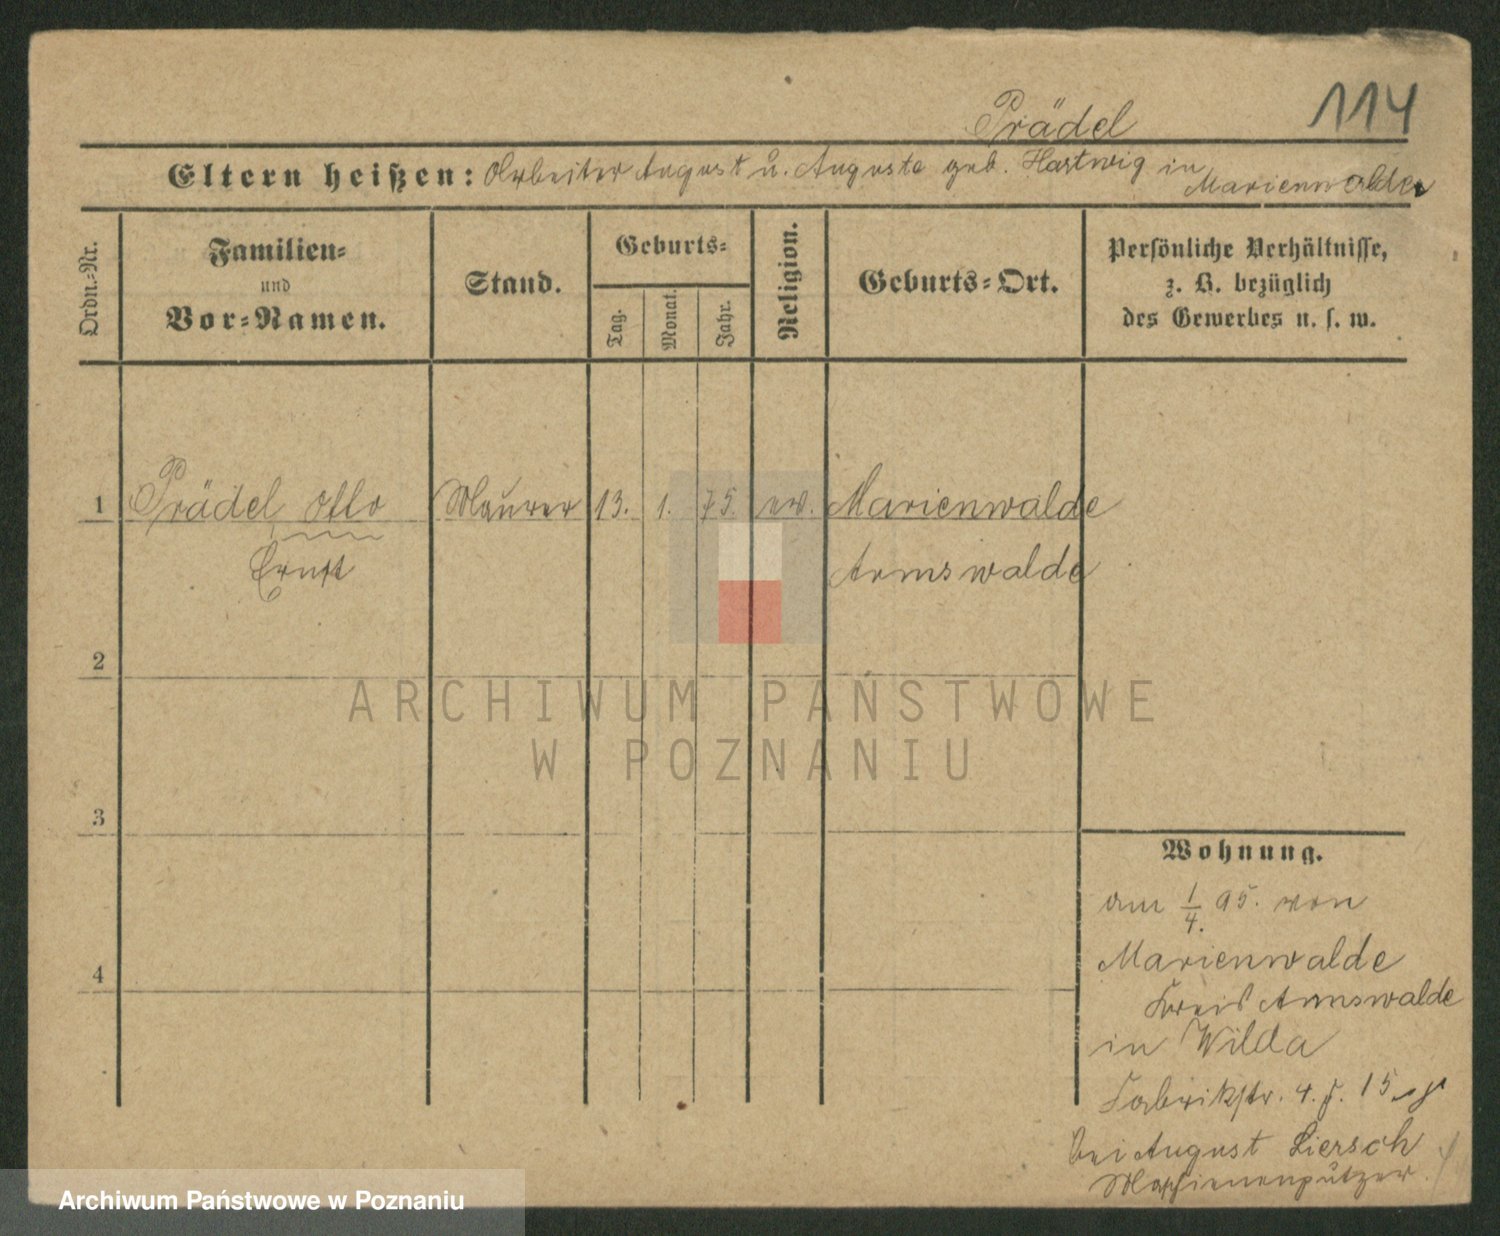 114
Prädel
Eltern heißen: Arbeiter August u. Auguste geb. Hartwig in
Marienwalde
Ordn.-Nr.
Familien-
und
Vor-Namen.
Stand.
Geburts-
Tag.
Monat.
Jahr.
Religion.
Geburts-Ort.
Persönliche Verhältnisse,
z. B. bezüglich
des Gewerbes u. s. w.
1 Prädel Otto Maurer 13. 1. 75. ev. Marienwalde
Ernst Arnswalde
2
ARCHIWUM PAŃSTWOWE
W POZNANIU
3
Wohnung.
am 1/4. 95. von
Marienwalde
4
Kreis Arnswalde
in Wilda
Fabrikstr. 4. 15
bei August Liersch
Maschienenputzer.
Archiwum Państwowe w Poznaniu